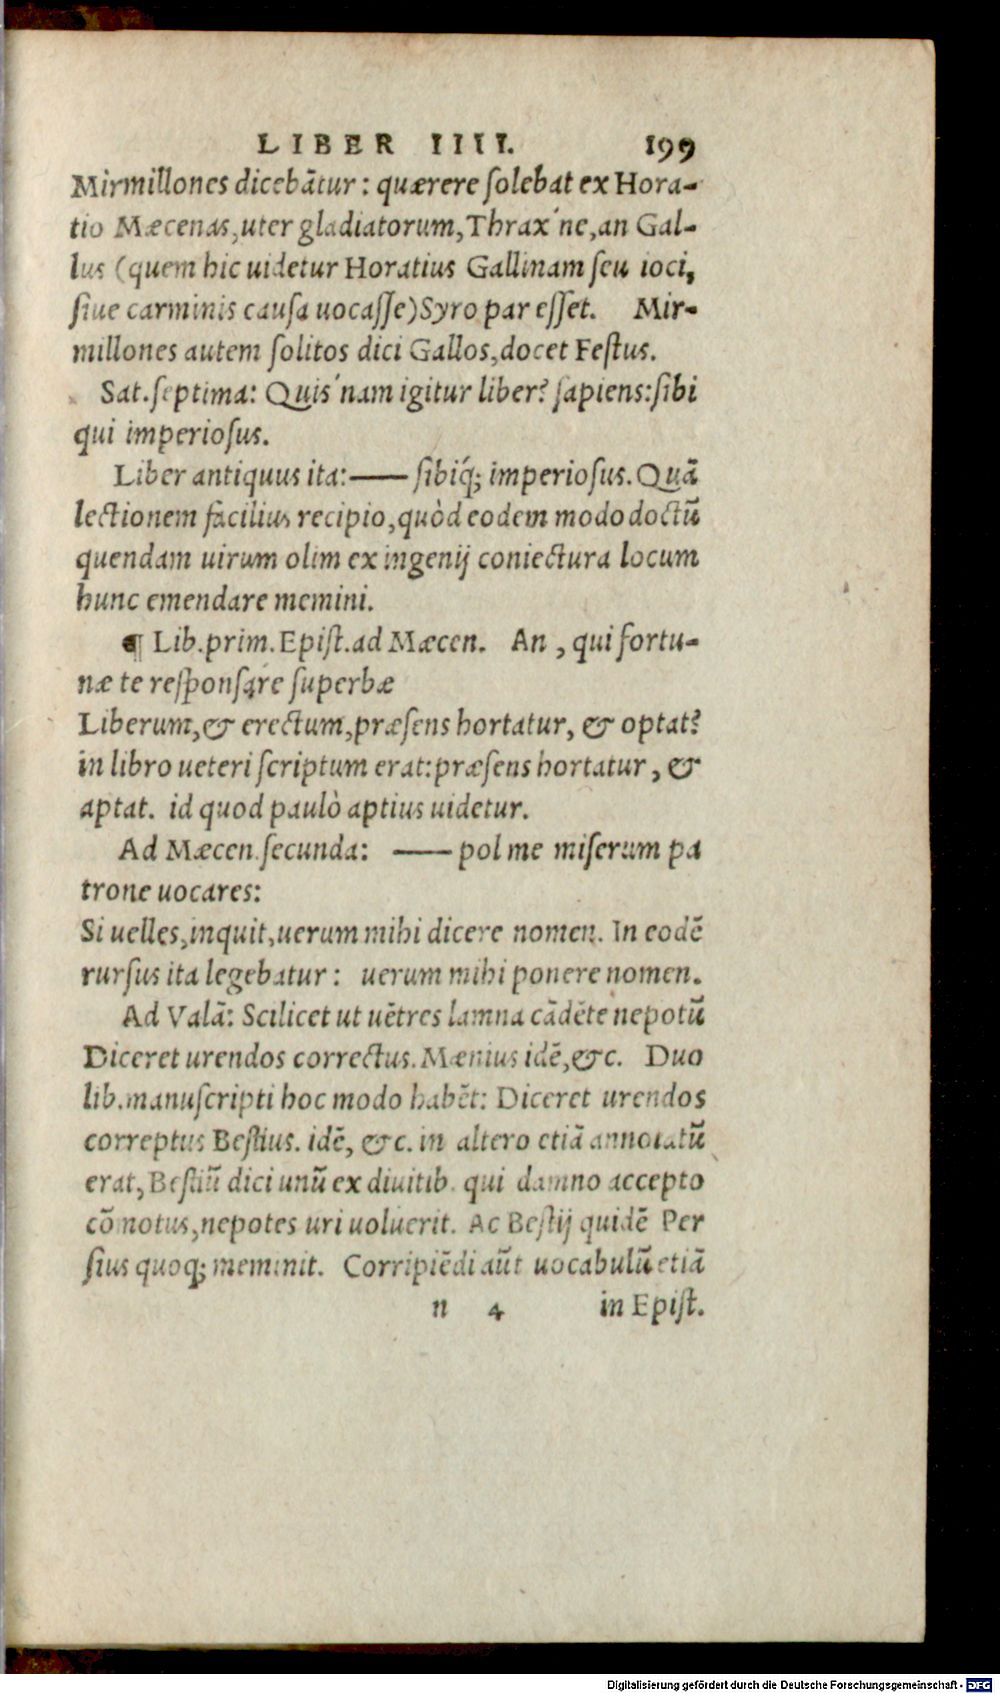 LIBER IIII. 199
Mirmillones dicebātur: quærere ſolebat ex Hora-
tio Mæcenas,uter gladiatorum,Thrax'ne,an Gal-
lus (quem hic uidetur Horatius Gallinam ſeu ioci,
ſiue carminis cauſa uocaſſe)Syro par eſſet. Mir-
millones autem ſolitos dici Gallos,docet Feſtus.
Sat.ſeptima: Quis'nam igitur liber? ſapiens:ſibi
qui imperioſus.
Liber antiquus ita:—— ſibiq́; imperioſus. Quā
lectionem facilius recipio,quòd eodem modo doctū
quendam uirum olim ex ingenij coniectura locum
hunc emendare memini.
¶ Lib.prim.Epiſt.ad Mæcen. An , qui fortu-
næ te reſponſare ſuperbæ
Liberum,& erectum,præſens hortatur, & optat?
in libro ueteri ſcriptum erat:præſens hortatur, &
aptat. id quod paulò aptius uidetur.
Ad Mæcen.ſecunda: —— pol me miſerum pa
trone uocares:
Si uelles,inquit,uerum mihi dicere nomen. In eodē
rurſus ita legebatur: uerum mihi ponere nomen.
Ad Valā: Scilicet ut uētres lamna cādēte nepotū
Diceret urendos correctus. Mænius idē,&c. Duo
lib.manuſcripti hoc modo habēt: Diceret urendos
correptus Beſtius. idē, &c. in altero etiā annotatū
erat, Beſtiū dici unū ex diuitib. qui damno accepto
cō notus,nepotes uri uoluerit. Ac Beſtij quidē Per
ſius quoq; meminit. Corripiēdi aūt uocabulū etiā
n 4 in Epiſt.
Digitalisierung gefördert durch die Deutsche Forschungsgemeinschaft - DFG